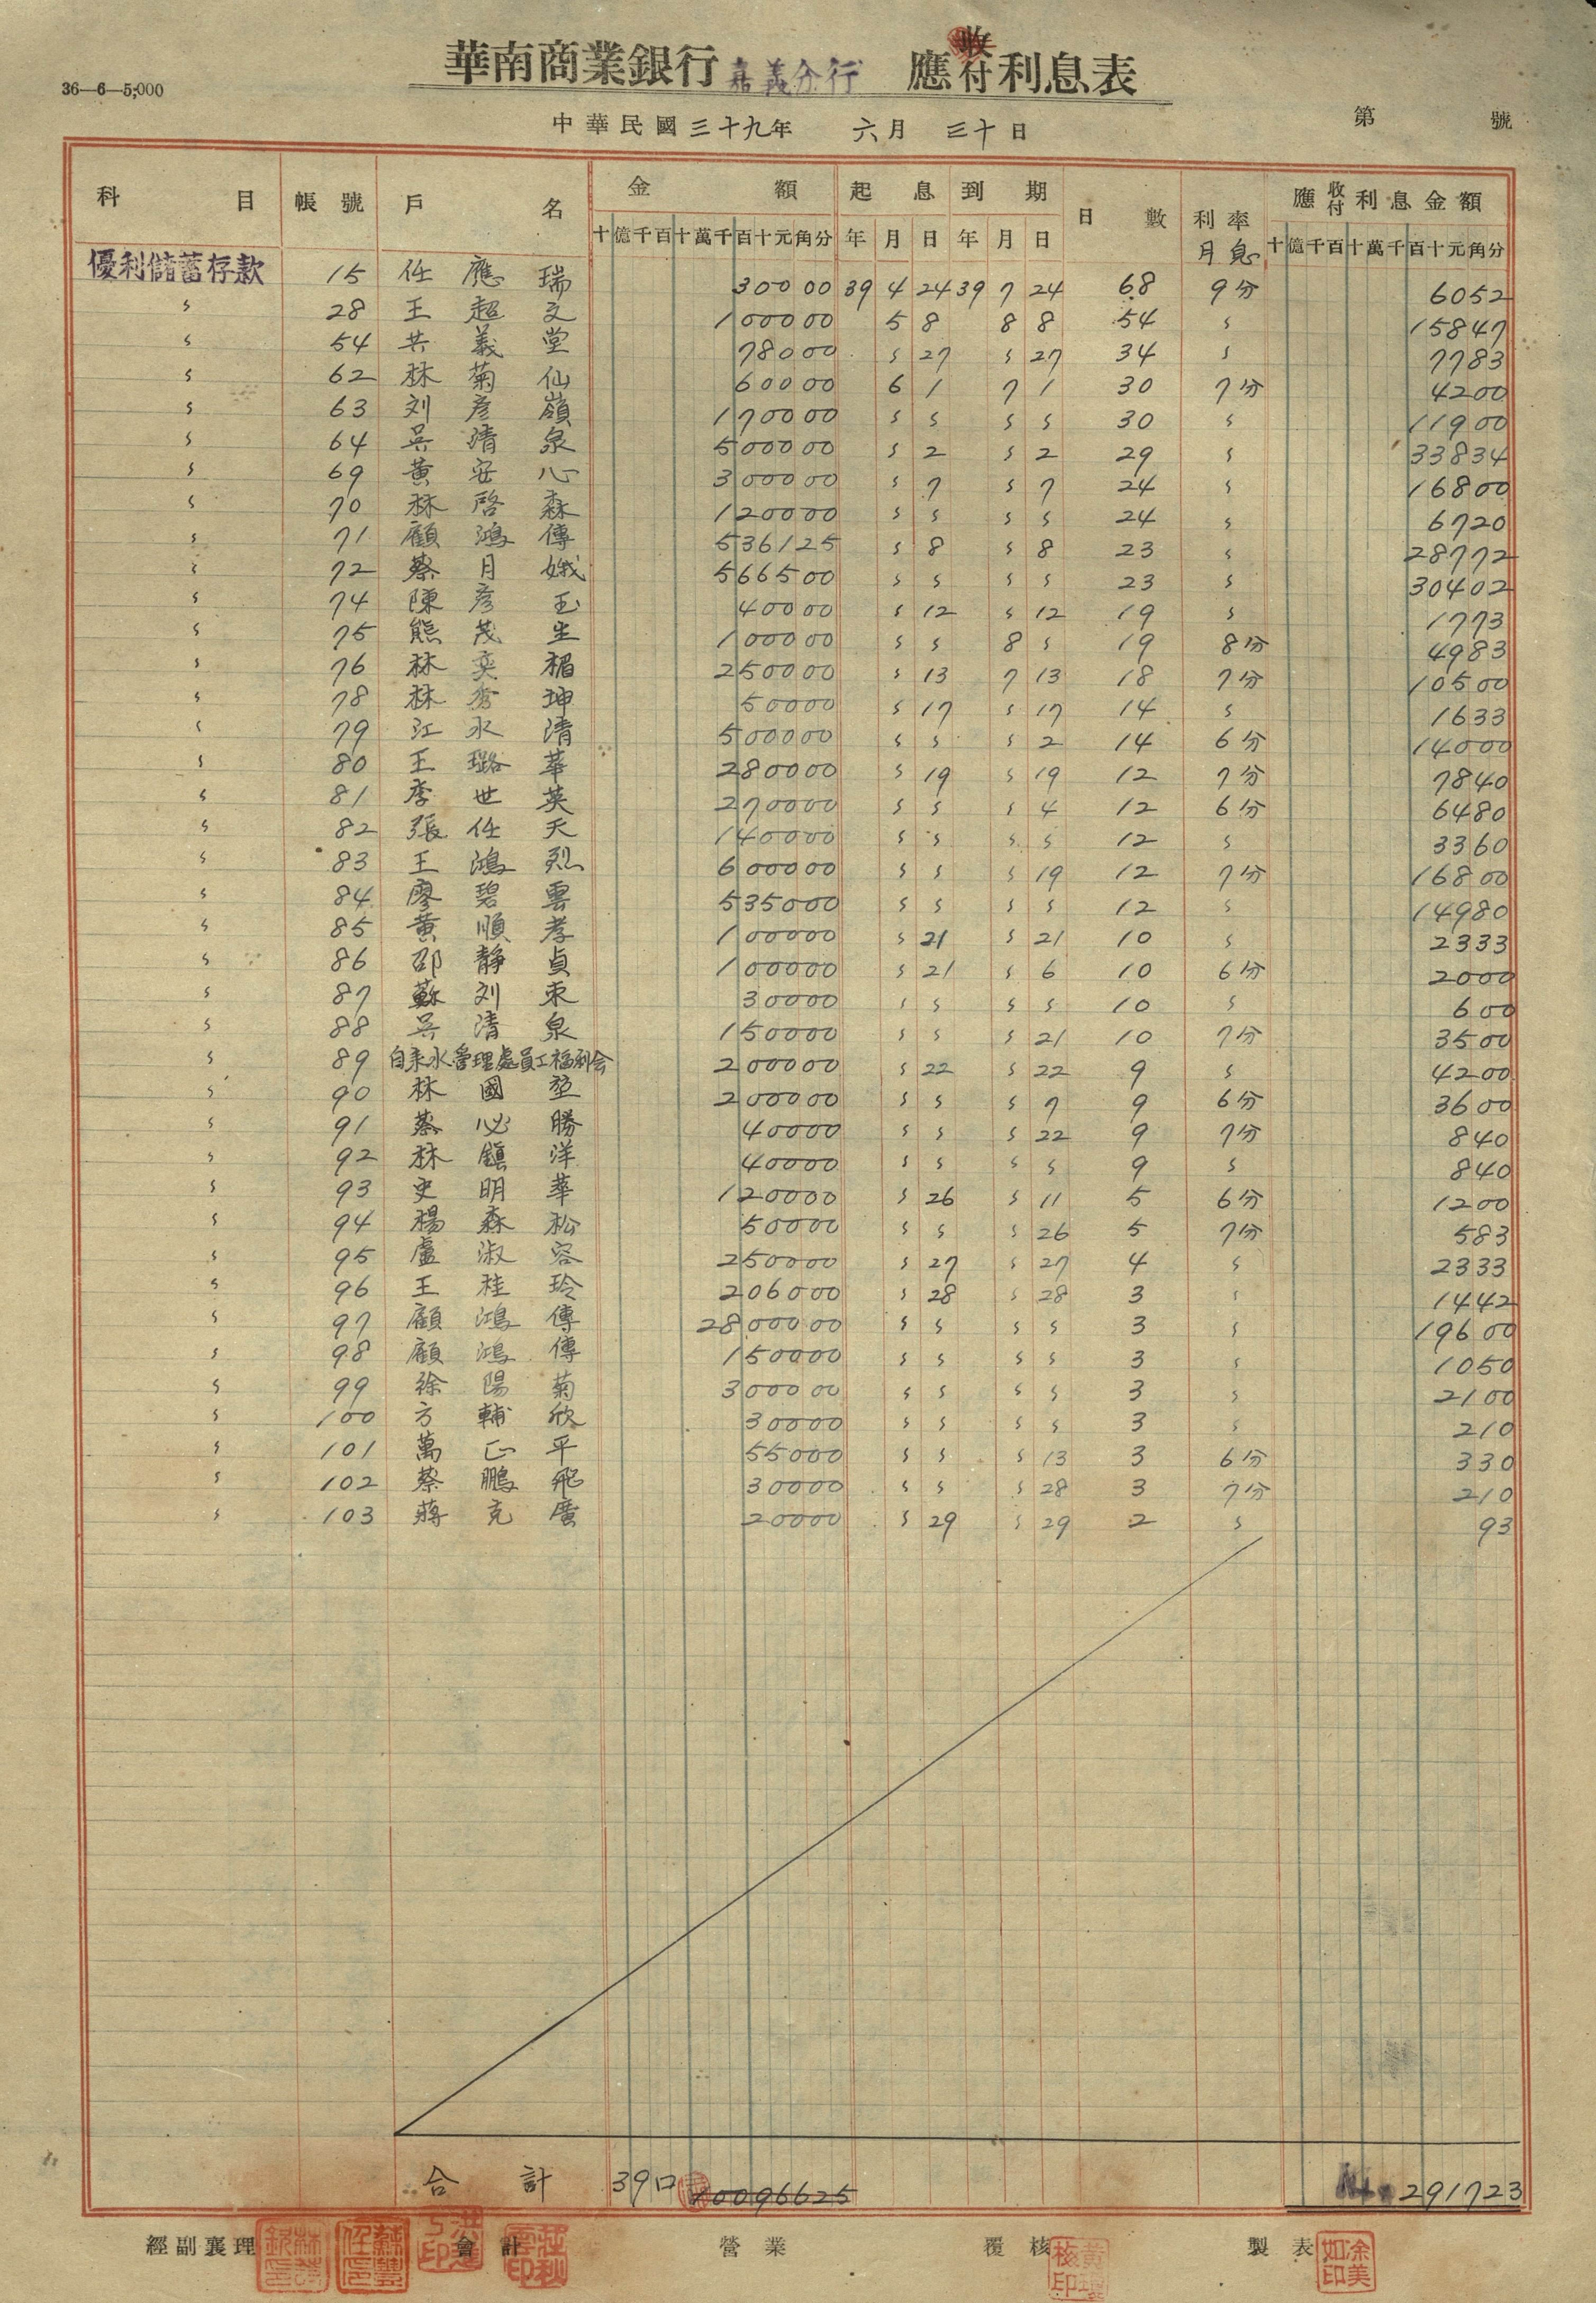 36—6—5,000
華南商業銀行 嘉義分行 應收付利息表
中華民國三十九年 六月 三十日
第 號
科目 帳號 戶名 金額 起息 到期 日數 利率 應收付利息金額
十億千百十萬千百十元角分 年月日 年月日 月息 十億千百十萬千百十元角分
優利儲蓄存款 15 任應瑞 30000 39 4 24 39 7 24 68 9分 6052
〃 28 王超文 100000 5 8 8 8 54 〃 15847
〃 54 共義堂 78000 〃 27 〃 27 34 〃 7783
〃 62 林菊仙 60000 6 1 7 1 30 7分 4200
〃 63 刘彦嶺 170000 〃 〃 〃 〃 30 〃 11900
〃 64 吳清泉 500000 〃 2 〃 2 29 〃 33834
〃 69 黃安心 300000 〃 7 〃 7 24 〃 16800
〃 70 林啓森 120000 〃 〃 〃 〃 24 〃 6720
〃 71 顧鴻傳 536125 〃 8 〃 8 23 〃 28772
〃 72 蔡月娥 566500 〃 〃 〃 〃 23 〃 30402
〃 74 陳彦玉 40000 〃 12 〃 12 19 〃 1773
〃 75 熊茂生 100000 〃 〃 8 〃 19 8分 4983
〃 76 林奕楣 250000 〃 13 7 13 18 7分 10500
〃 78 林秀珅 50000 〃 17 〃 17 14 〃 1633
〃 79 江永清 500000 〃 〃 〃 2 14 6分 14000
〃 80 王璐華 280000 〃 19 〃 19 12 7分 7840
〃 81 李世英 270000 〃 〃 〃 4 12 6分 6480
〃 82 張任天 140000 〃 〃 〃 〃 12 〃 3360
〃 83 王鴻烈 600000 〃 〃 〃 19 12 7分 16800
〃 84 廖碧雲 535000 〃 〃 〃 〃 12 〃 14980
〃 85 黃順孝 100000 〃 21 〃 21 10 〃 2333
〃 86 邵靜貞 100000 〃 21 〃 6 10 6分 2000
〃 87 蘇刘束 30000 〃 〃 〃 〃 10 〃 600
〃 88 吳清泉 150000 〃 〃 〃 21 10 7分 3500
〃 89 自來水管理處員工福利会 200000 〃 22 〃 22 9 〃 4200
〃 90 林國堃 200000 〃 〃 〃 7 9 6分 3600
〃 91 蔡必勝 40000 〃 〃 〃 22 9 7分 840
〃 92 林鎮洋 40000 〃 〃 〃 〃 9 〃 840
〃 93 史明華 120000 〃 26 〃 11 5 6分 1200
〃 94 楊森松 50000 〃 〃 〃 26 5 7分 583
〃 95 盧淑容 250000 〃 27 〃 27 4 〃 2333
〃 96 王桂玲 206000 〃 28 〃 28 3 〃 1442
〃 97 顧鴻傳 2800000 〃 〃 〃 〃 3 〃 19600
〃 98 顧鴻傳 150000 〃 〃 〃 〃 3 〃 1050
〃 99 徐陽菊 300000 〃 〃 〃 〃 3 〃 2100
〃 100 方輔欣 30000 〃 〃 〃 〃 3 〃 210
〃 101 萬正平 55000 〃 〃 〃 13 3 6分 330
〃 102 蔡鵬飛 30000 〃 〃 〃 28 3 7分 210
〃 103 蔣克廣 20000 〃 29 〃 29 2 〃 93
合計 39口 10096625 291723
經副襄理 會計 營業 覆核 製表 余美如印